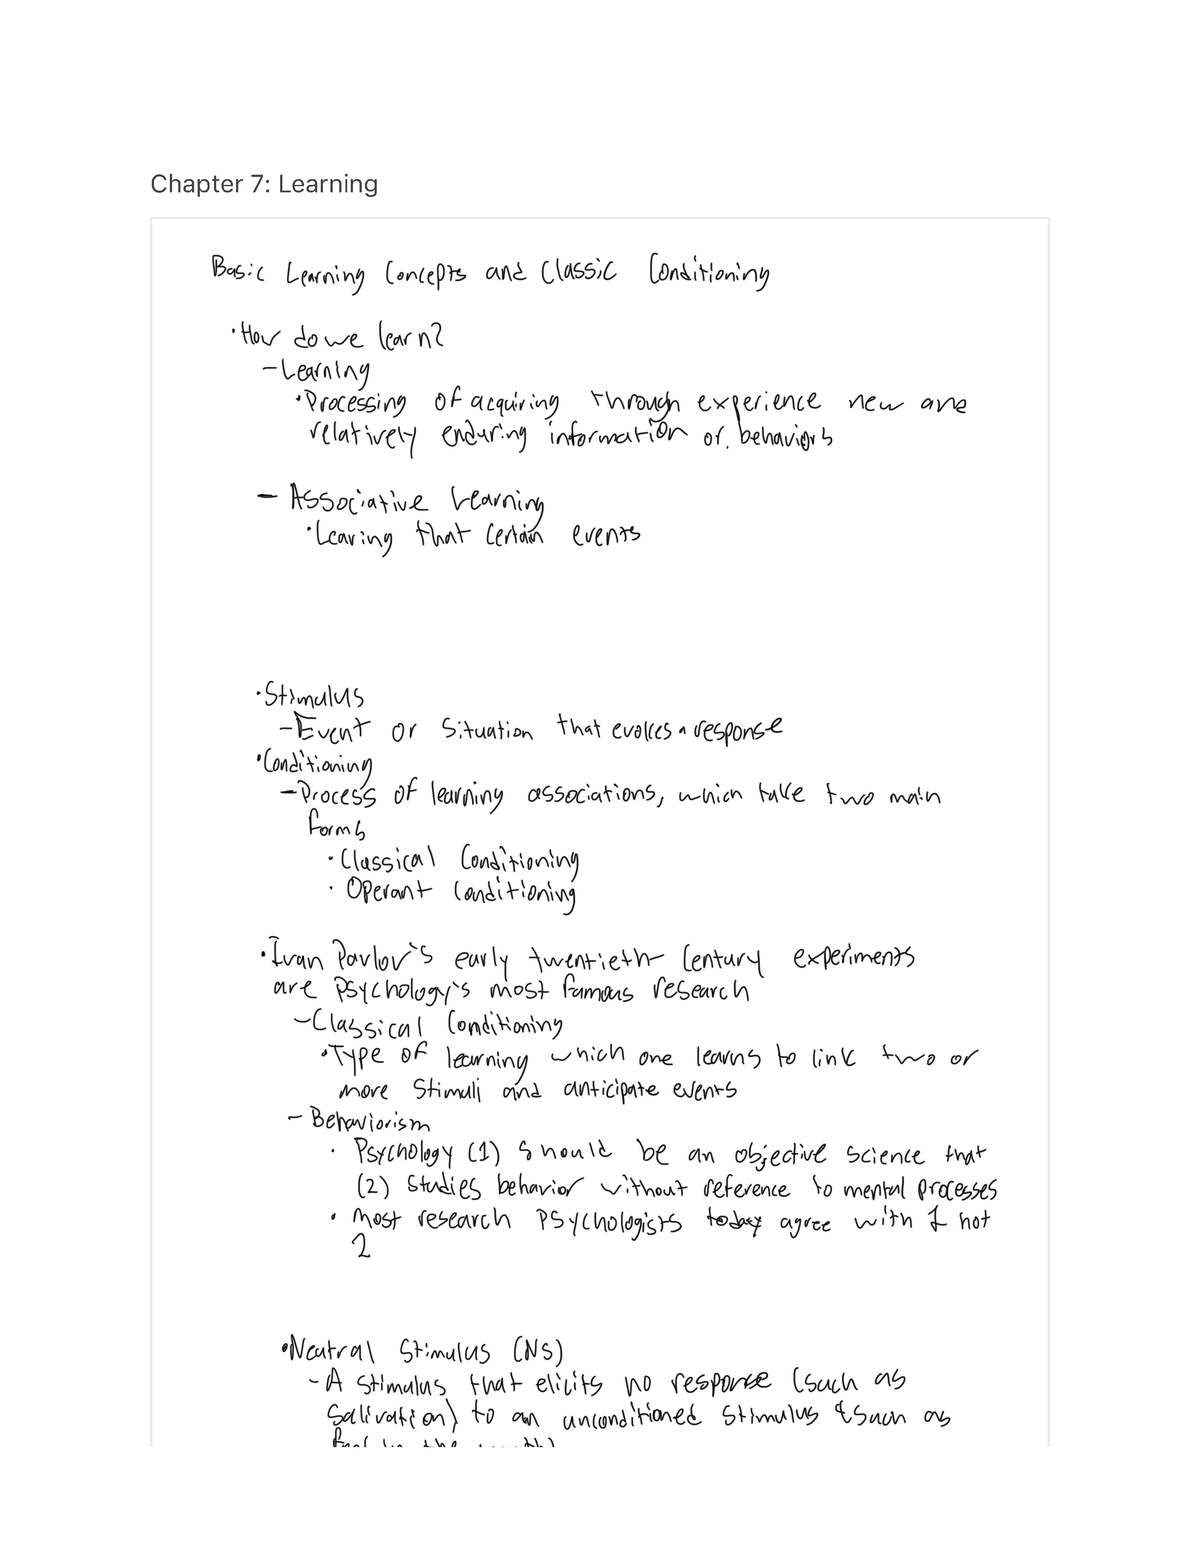 Chapter 7: Learning
Basic Learning Concepts and Classic Conditioning
• How do we learn?
– Learning
• Processing of acquiring through experience new and
relatively enduring information or behaviors
– Associative Learning
• Learing that certain events
• Stimulus
– Event or Situation that evokes a response
• Conditioning
– Process of learning associations, which take two main
forms
• Classical Conditioning
• Operant Conditioning
• Ivan Pavlov's early twentieth Century experiments
are psychology's most famous research
– Classical Conditioning
• Type of learning which one learns to link two or
more Stimuli and anticipate events
– Behaviorism
• Psychology (1) Should be an objective science that
(2) Studies behavior without reference to mental processes
• Most research Psychologists today agree with 1 not
2
• Neutral Stimulus (NS)
– A stimulus that elicits no response (such as
Salivation) to an unconditioned Stimulus (such as